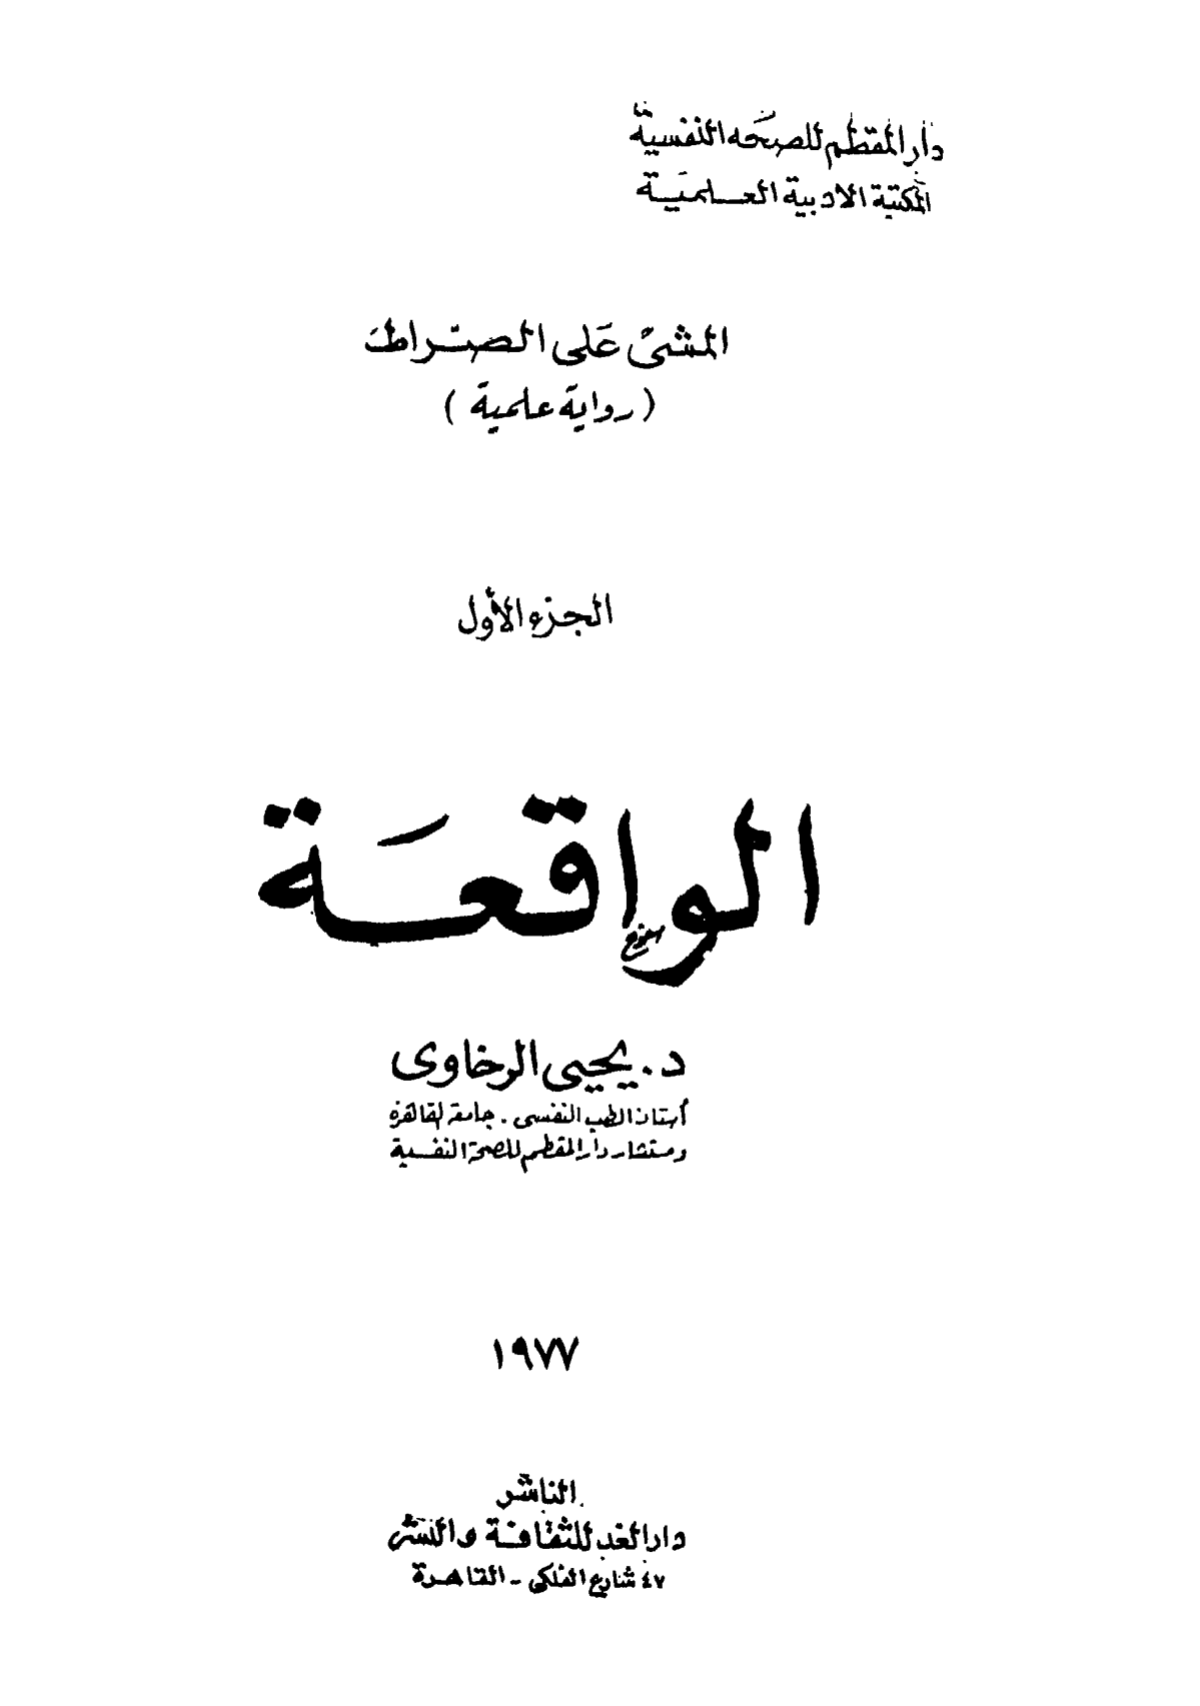 دار المقطم للصحه النفسية
المكتبة الادبية العلمية
المشى على الصراط
(رواية علمية)
الجزء الأول
الواقعة
د. يحيى الرخاوى
أستاذ الطب النفسى . جامعة القاهرة
ومستشار دار المقطم للصحة النفسية
١٩٧٧
الناشر
دار الغد للثقافة والنشر
٤٧ شارع الفلكى - القاهرة